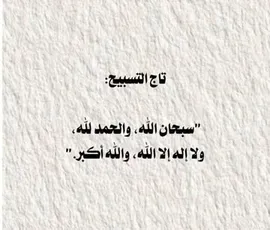 تاج التسبيح:
"سبحان الله، والحمد لله،
ولا إله إلا الله، والله أكبر."